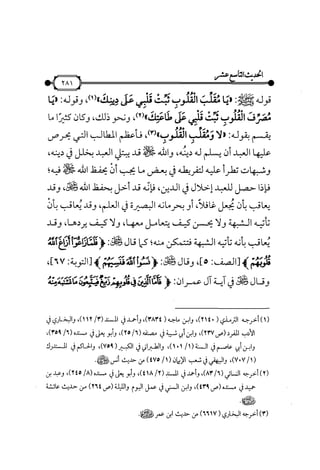 الحديث التاسع عشر
٢٨١
قوله ﷺ: «يَا مُقَلِّبَ الْقُلُوبِ ثَبِّتْ قَلْبِي عَلَى دِينِكَ»(١)، وقوله: «يَا
مُصَرِّفَ الْقُلُوبِ ثَبِّتْ قَلْبِي عَلَى طَاعَتِكَ»(٢)، ونحو ذلك، وكان كثيرًا ما
يقسم بقوله: «لَا وَمُقَلِّبِ الْقُلُوبِ»(٣)، فأعظم المطالب التي يحرص
عليها العبد أن يسلم له دينُه، والله ﷻ قد يبتلي العبد بخلل في دينه،
وشبهات تطرأ عليه لتفريطه في بعض ما يجب أنْ يحفظ الله فيه؛
فإذا حصل للعبد إخلال في الدين، فإنَّه قد أخل بحفظ الله، وقد
يعاقب بأن يُجعل غافلًا، أو بحرمانه البصيرة في العلم، وقد يُعاقب بأنْ
تأتيه الشبهة ولا يحسن كيف يتعامل معها، ولا كيف يردها، وقد
يُعاقب بأنه تأتيه الشبهة فتتمكن منه؛ كما قال ﷻ: ﴿فَلَمَّا زَاغُوا أَزَاغَ اللَّهُ
قُلُوبَهُمْ﴾ [الصف: ٥]، وقال ﷻ: ﴿نَسُوا اللَّهَ فَنَسِيَهُمْ﴾ [التوبة: ٦٧]،
وقال ﷻ في آية آل عمران: ﴿فَأَمَّا الَّذِينَ فِي قُلُوبِهِمْ زَيْغٌ فَيَتَّبِعُونَ مَا تَشَابَهَ مِنْهُ
(١) أخرجه الترمذي (٢١٤٠)، وابن ماجه (٣٨٣٤)، وأحمد في المسند (٣/ ١١٢)، والبخاري في
الأدب المفرد (ص٢٣٧)، وابن أبي شيبة في مصنفه (٦/ ٢٥)، وأبو يعلى في مسنده (٦/ ٣٥٩)،
وابن أبي عاصم في السنة (١/ ١٠١)، والطبراني في الكبير (٧٥٩)، والحاكم في المستدرك
(١/ ٧٠٧)، والبيهقي في شعب الإيمان (١/ ٤٧٥) من حديث أنس
(٢) أخرجه النسائي (٦/ ٨٣)، وأحمد في المسند (٢/ ٤١٨)، وأبو يعلى في مسنده (٨/ ٢٤٥)، وعبد بن
حميد في مسنده (ص٤٣٩)، وابن السني في عمل اليوم والليلة (ص٢٦٤) من حديث عائشة
(٣) أخرجه البخاري (٦٦١٧) من حديث ابن عمر